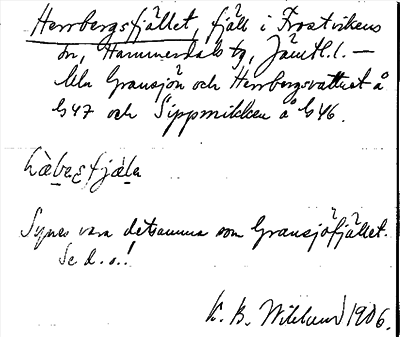 Herrbergsfjället, fjäll i Frostvikens
sn, Hammerdals tg, Jämtl. l. —
Mln Gransjön och Herrbergsvattnet å
G47 och Sippmikken å G46.
hæ̀bæʂfjäla
Synes vara detsamma som Gransjöfjället.
Se d. o.!
K. B. Wiklund 1906.